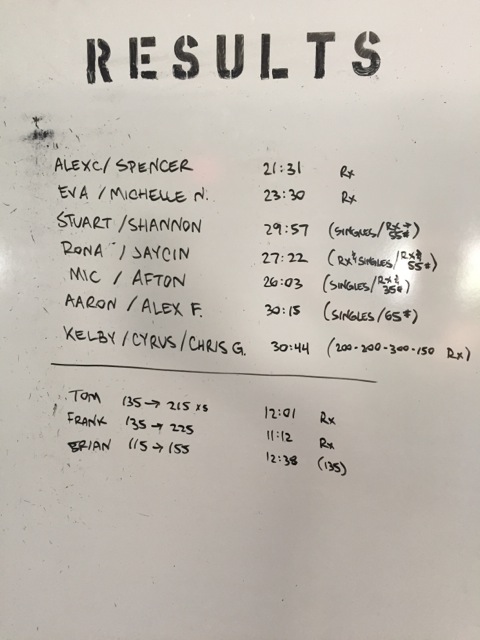 RESULTS
ALEXC/SPENCER 21:31 Rx
EVA/MICHELLE N. 23:30 Rx
STUART/SHANNON 29:57 (SINGLES/Rx → 55#)
RONA/JAYCIN 27:22 (Rx & SINGLES/Rx & 55#)
MIC / AFTON 26:03 (SINGLES/Rx & 35#)
AARON/ALEX F. 30:15 (SINGLES/65#)
KELBY/CYRUS/CHRIS G. 30:44 (200-200-300-150 Rx)
TOM 135→215 x5 12:01 Rx
FRANK 135→225 11:12 Rx
BRIAN 115→155 12:38 (135)